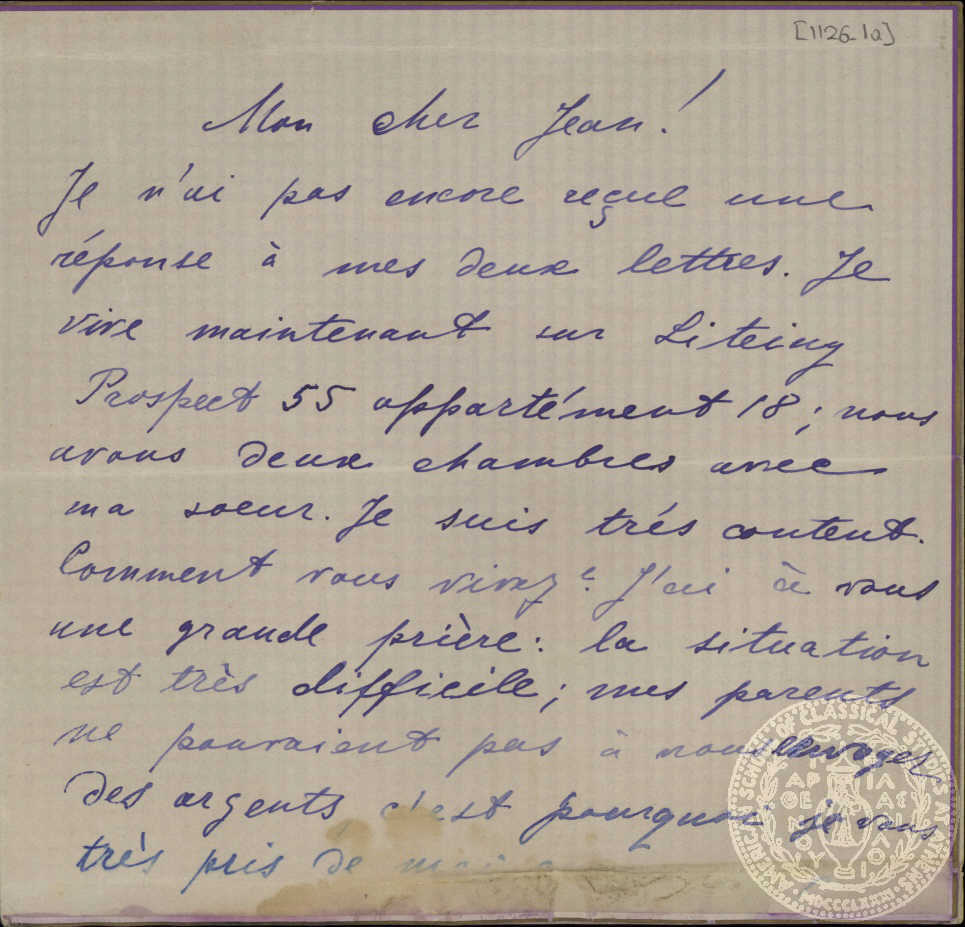 [1126-1a]
Mon cher Jean!
Je n'ai pas encore reçue une
réponse à mes deux lettres. Je
vive maintenant sur Liteiny
Prospect 55 appartément 18; nous
avons deux chambres avec
ma soeur. Je suis trés content.
Comment vous vivez? J'ai à vous
une grande prière: la situation
est très difficile; mes parents
ne pouvaient pas à nous envoyer
des argents c'est pourquoi je vous
très pris de
AMERICAN SCHOOL OF CLASSICAL STUDIES AT ATHENS
MDCCCLXXXI